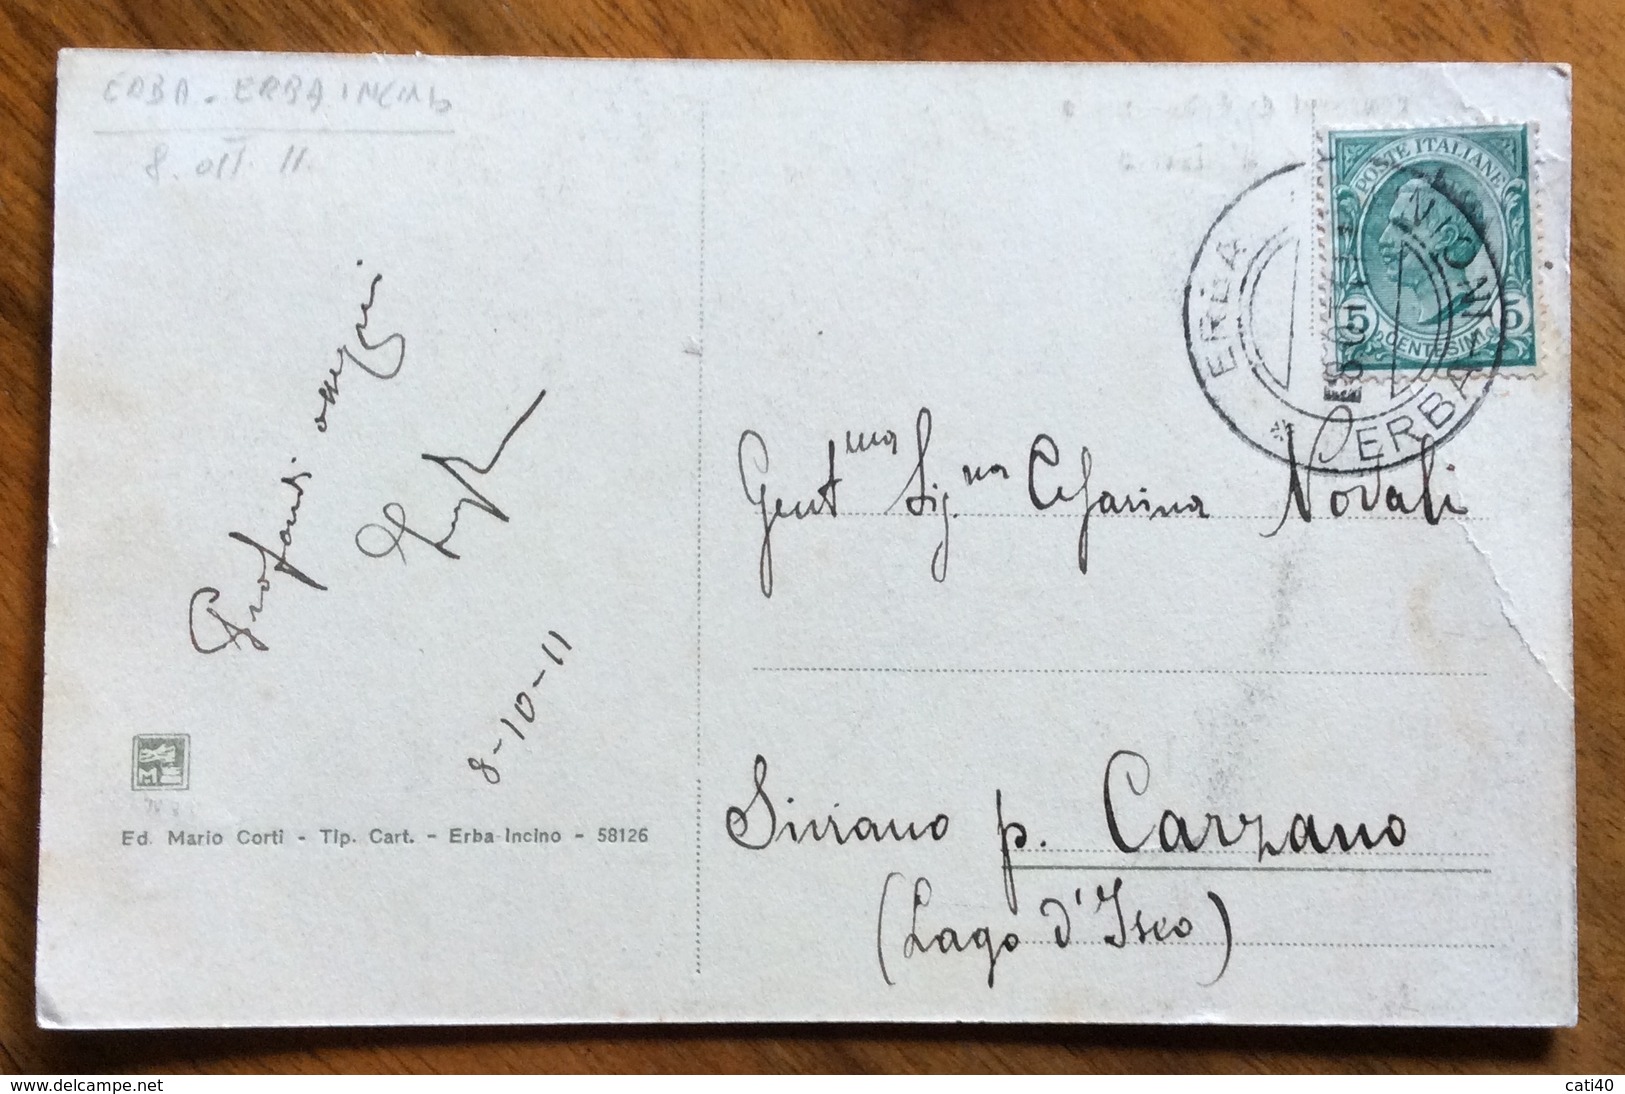 ERBA - ERBA INCINO
8. OTT. 11.
POSTE ITALIANE
5 CENTESIMI 5
ERBA
* ERBA INCINO
Profondi ossequi
8-10-11
Gent.ma Sig.na Cesarina Novali
Siviano p. Carzano
(Lago d'Iseo)
Ed. Mario Corti - Tip. Cart. - Erba-Incino - 58126
cati40